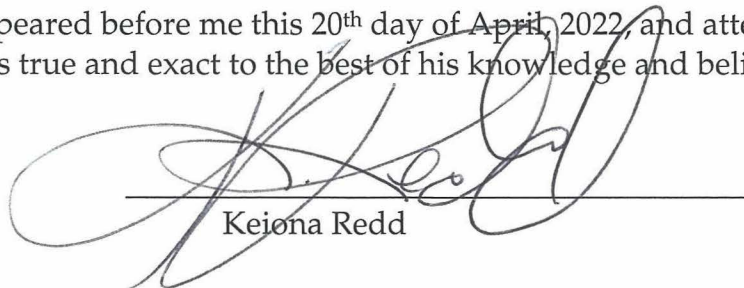 peared before me this 20th day of April, 2022, and atte
s true and exact to the best of his knowledge and beli
K. Redd
Keiona Redd